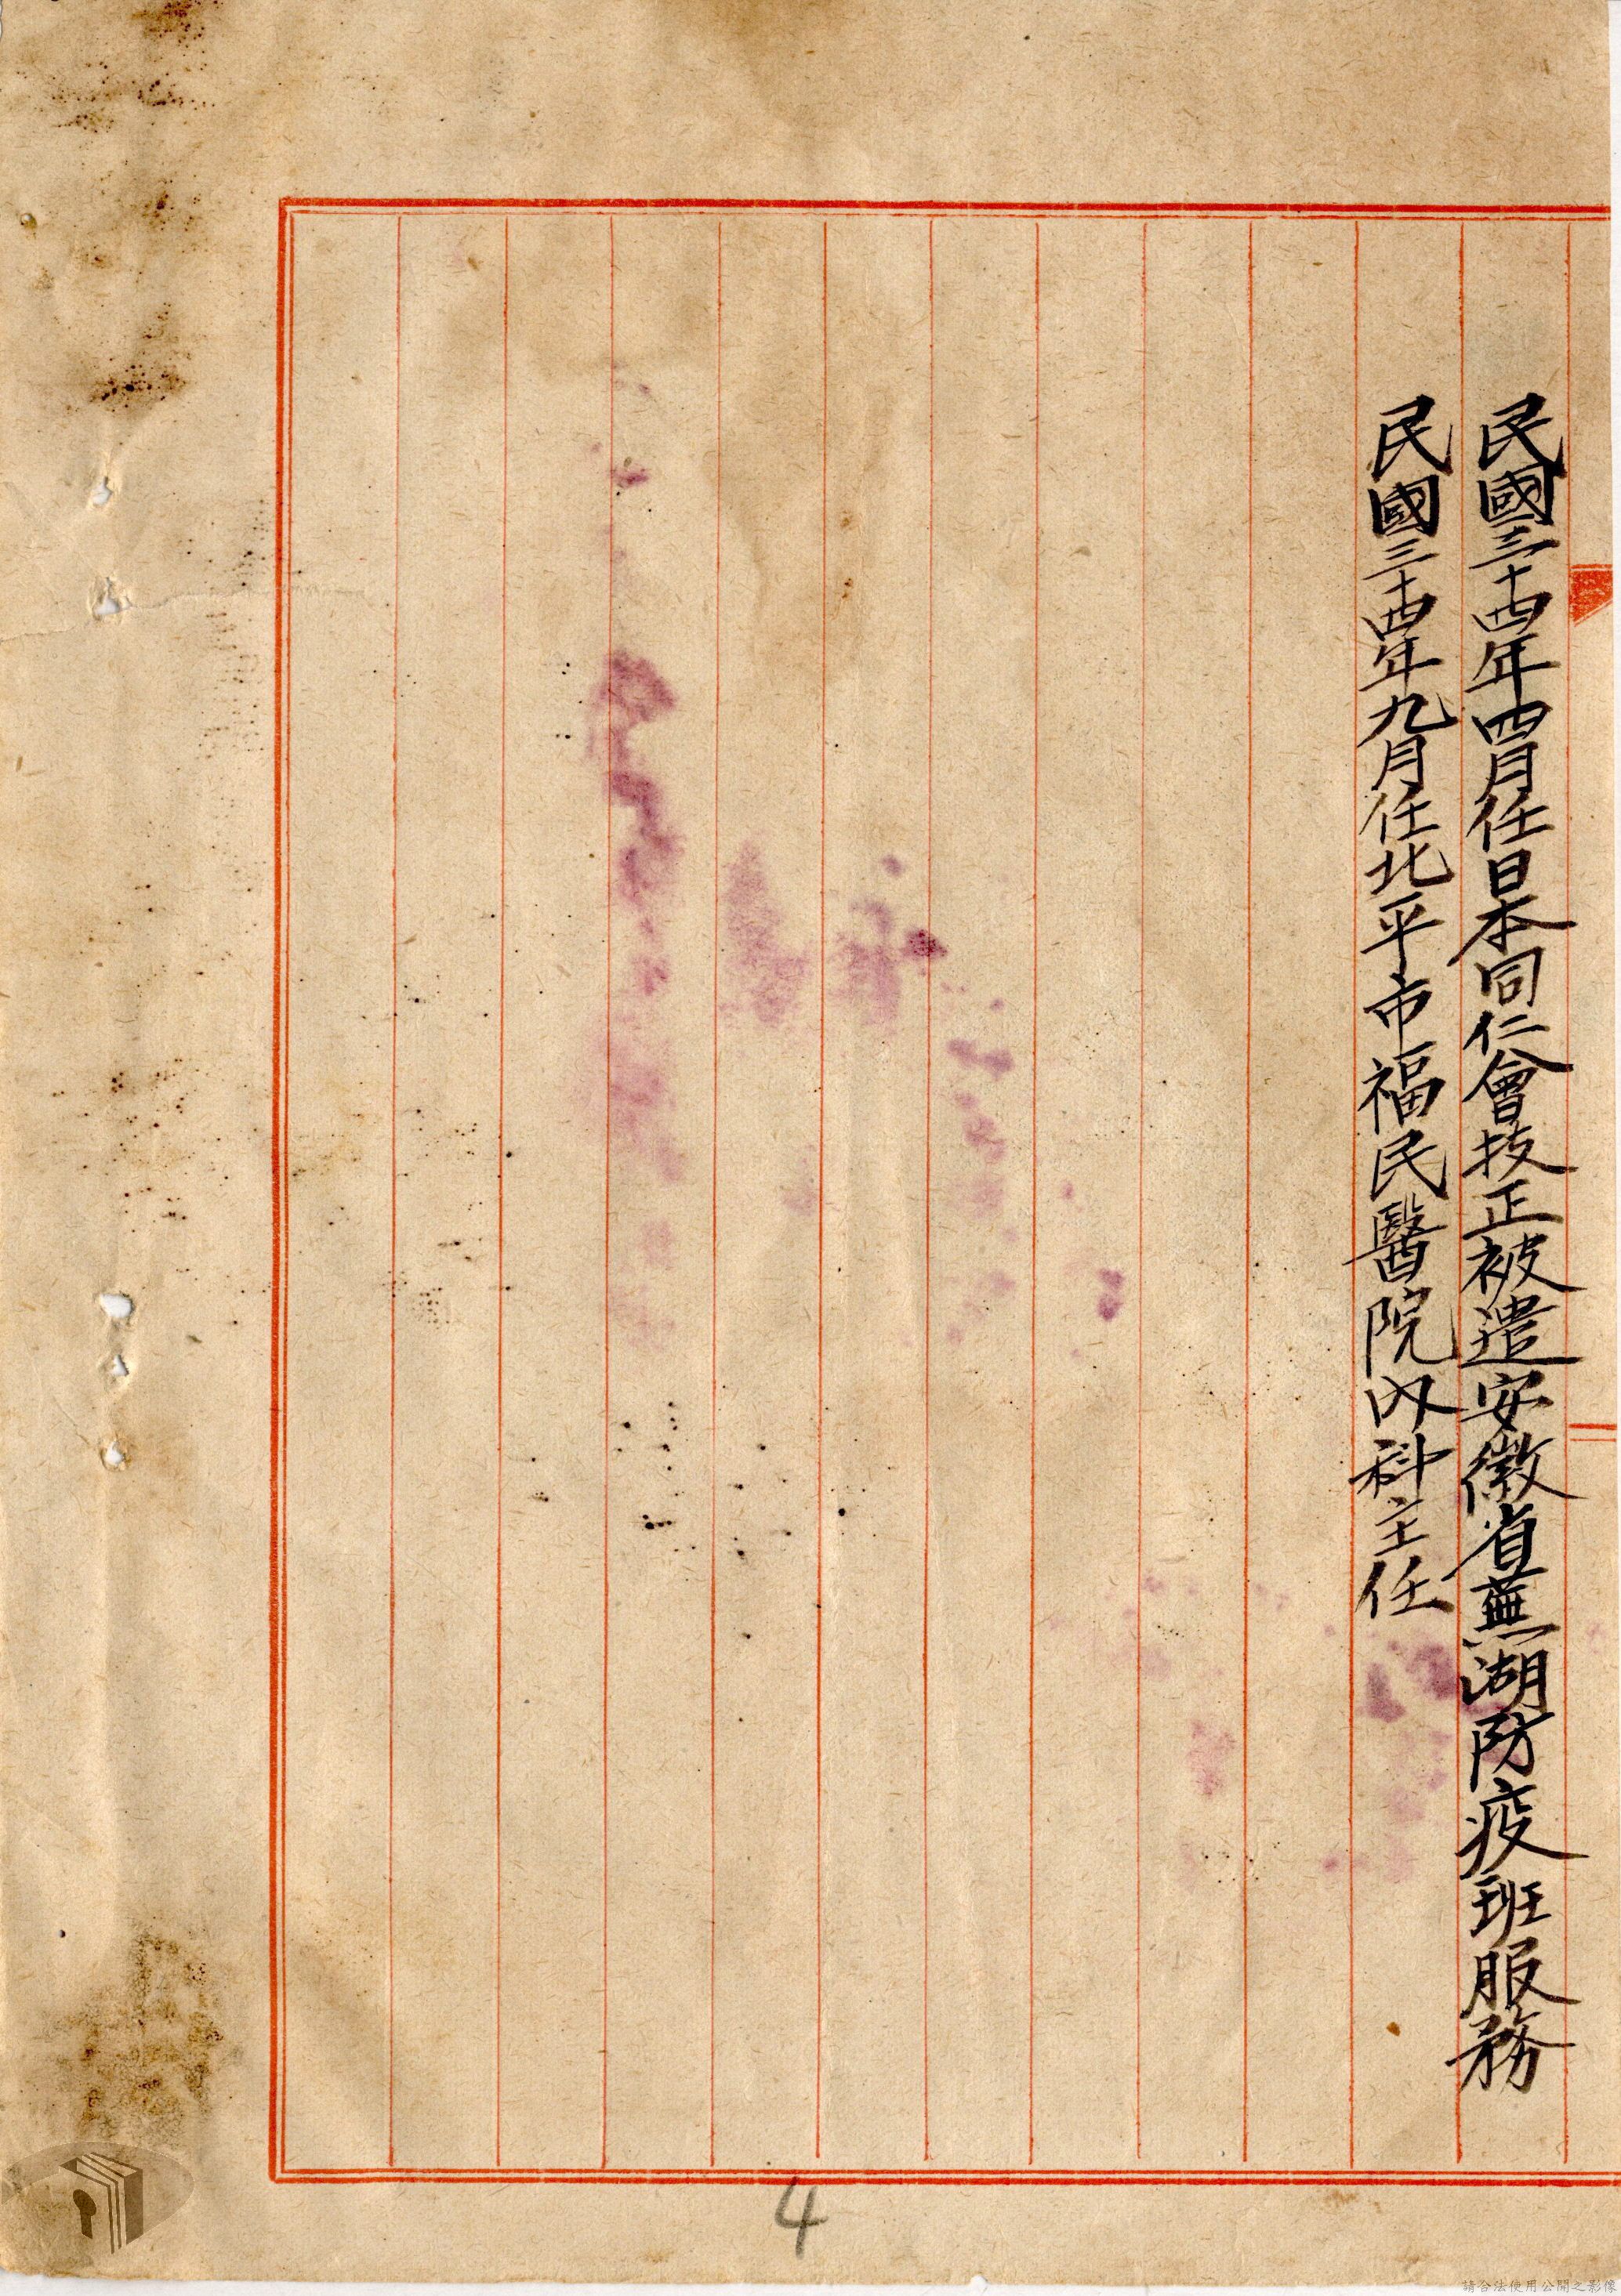 民國三十四年四月任日本同仁會技正被遣安徽省蕪湖防疫班服務
民國三十四年九月任北平市福民醫院內科主任
4
請合法使用公開之影像